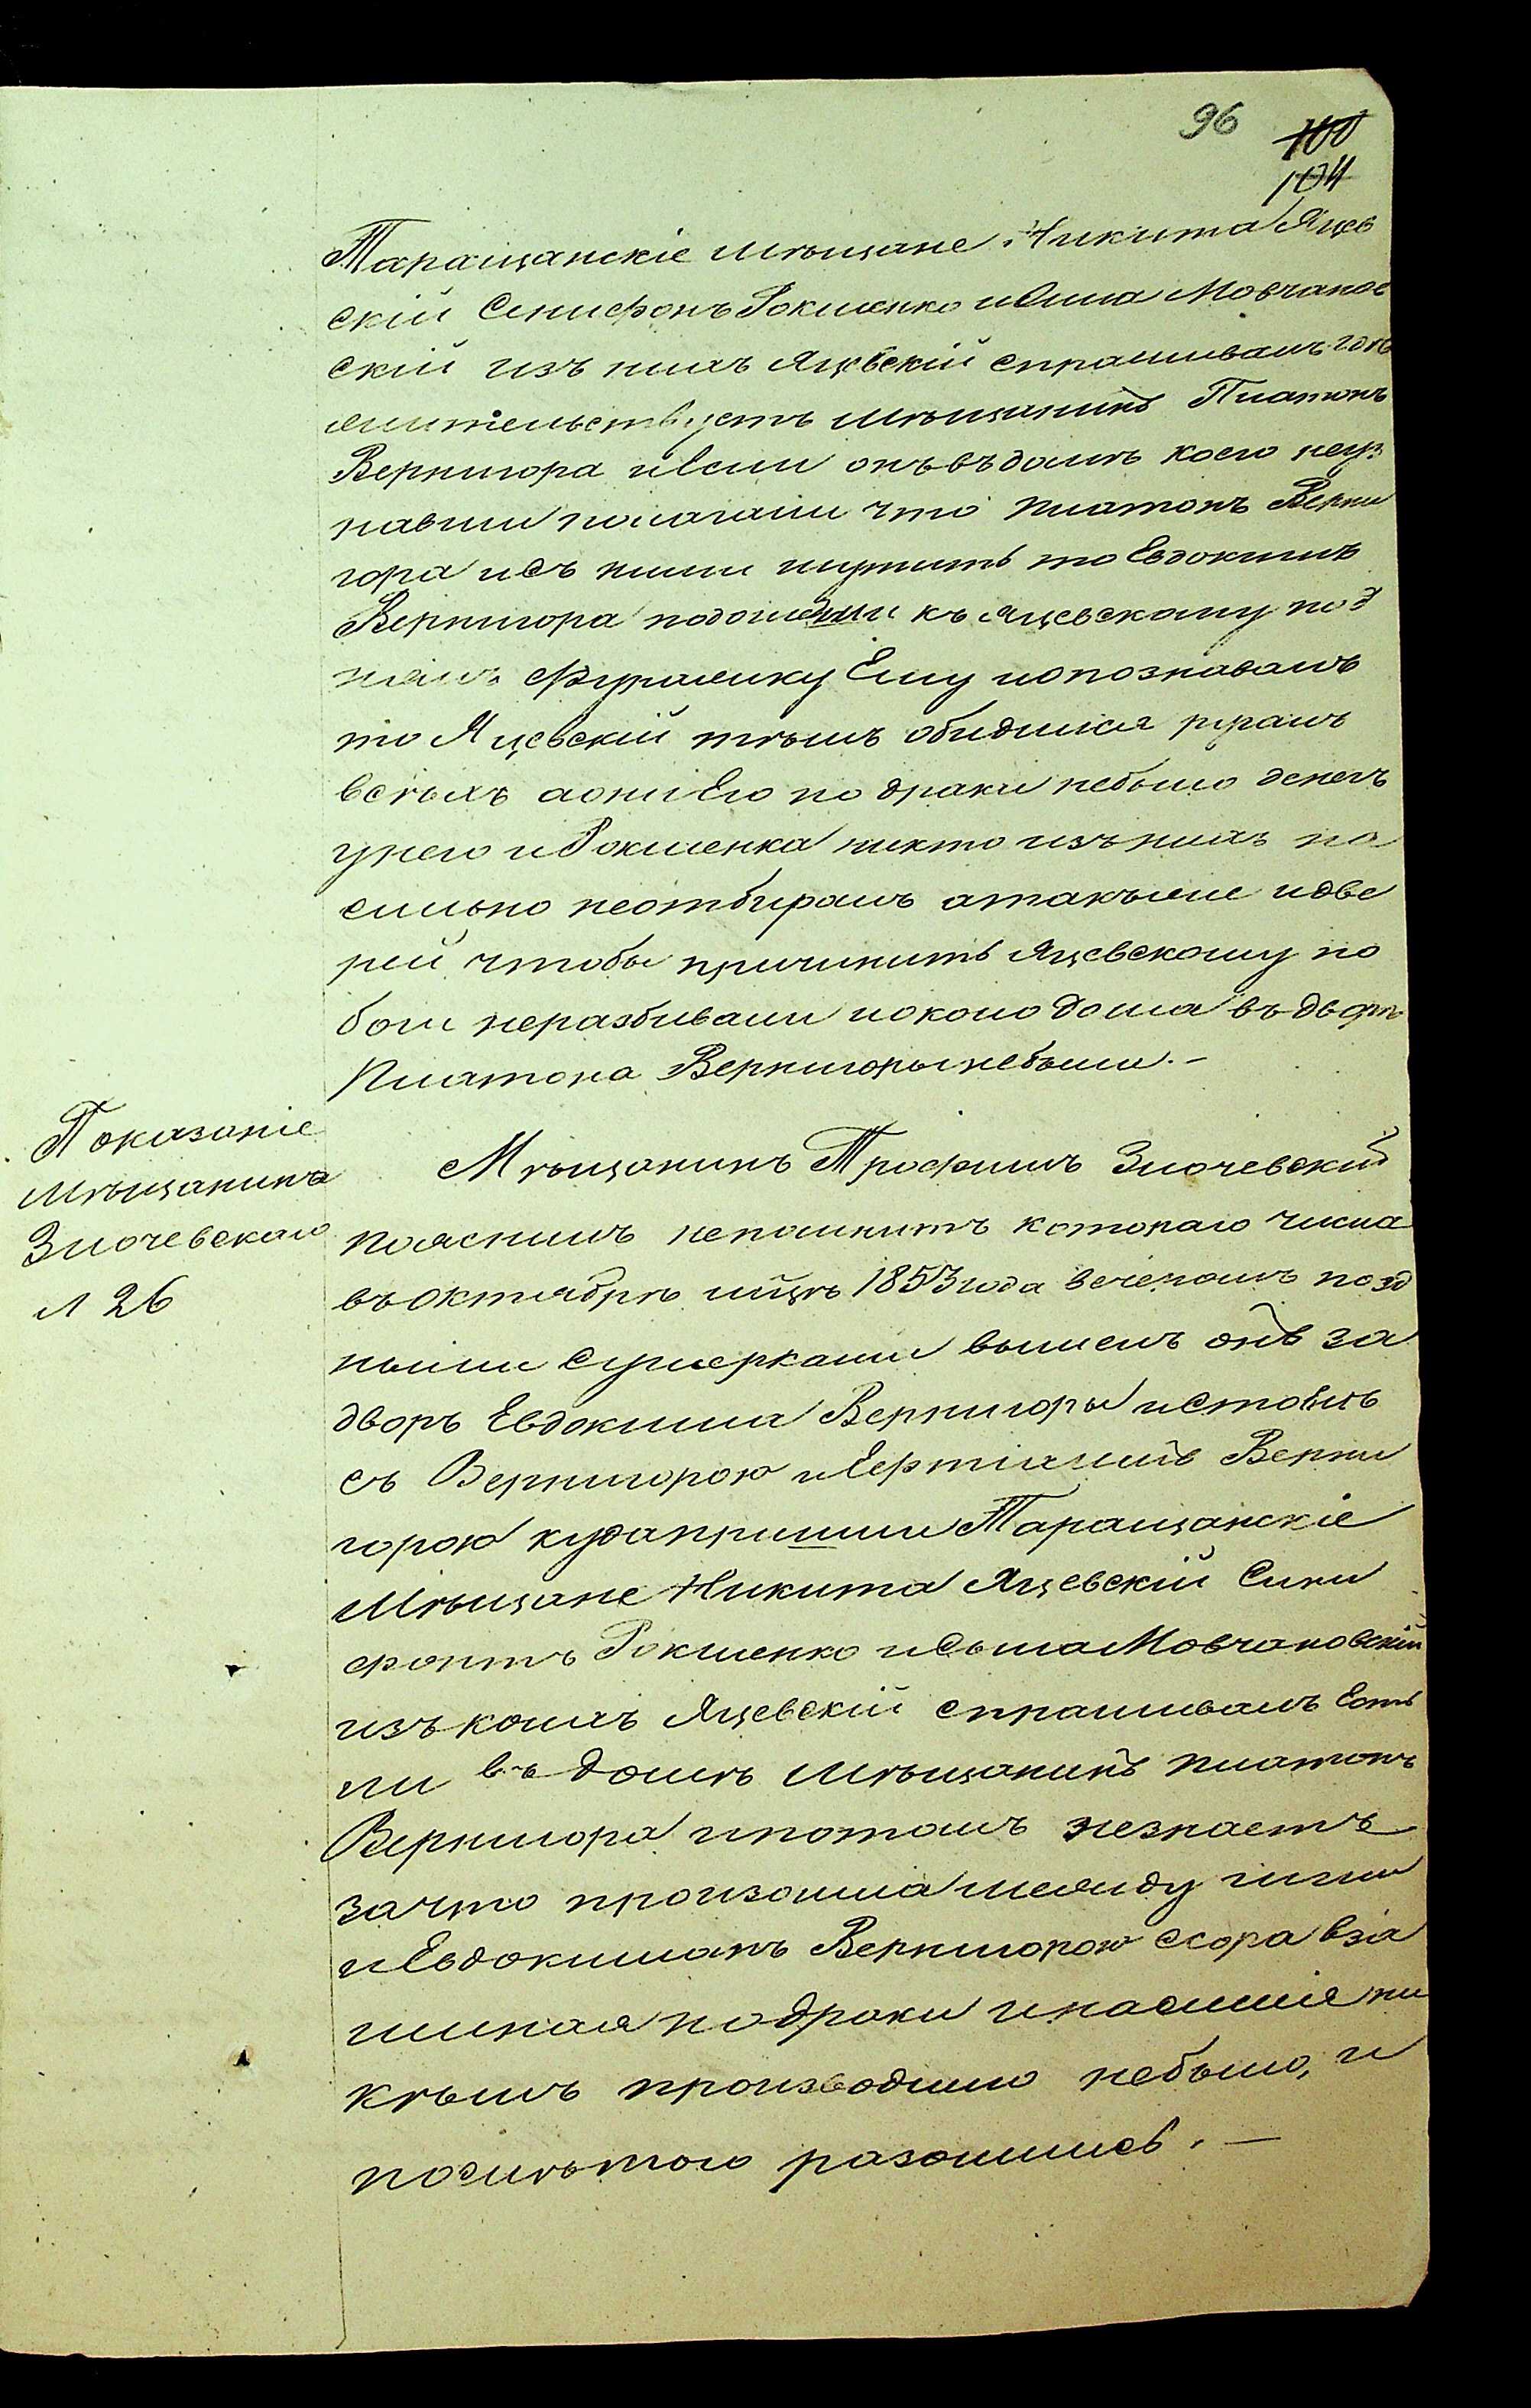 96
100
104
Таращанскіе мѣщане Никита Яцев
скій Ксенифонъ Рокшенко и Сыла Мовчанов
скій изъ нихъ Яцевскій спрашивалъ гдѣ
жительствуетъ мѣщанинъ Платонъ
Вернигора и Если онъ въ домѣ коего неуз
навши полагали что Платонъ Верни
гора и съ ними шутитъ то Евдокимъ
Вернигора подошедши къ Яцевскому под
нялъ Фуражку Ему и опознавалъ
то Яцевскій тѣмъ обидился ругалъ
всѣхъ а они Его но драки небыло денегъ
у него и Рокшенка никто изъ нихъ на
сильно неотбиралъ а такъже и две
рей чтобы причинить Яцевскому по
бои неразбивали и около дома въ дворѣ
Платона Вернигоры небыли.—
Показаніе
Мѣщанина
Злочевскаго
л 26
Мѣщанинъ Трофимъ Злочевскій
пояснилъ непомнитъ котораго числа
въ Октябрѣ м͠цѣ 1853 года вечеромъ позд
ными сумерками вышелъ онъ за
дворъ Евдокима Вернигоры и Стоялъ
съ Вернигорою и Верни
горою куда пришли Таращанскіе
Мѣщане Никита Яцевскій Сини
фонтъ Рокшенко и Сыла Мовчановскій
изъ коихъ Яцевскій спрашивалъ Есть
ли въ домѣ мѣщанинъ Платонъ
Вернигора и потомъ незнаетъ
за что произошла между ними
и Евдокимомъ Вернигорою ссора вза
имная но драки и насилія ни
кѣмъ производимо небыло, и
послѣ того разошлись.—